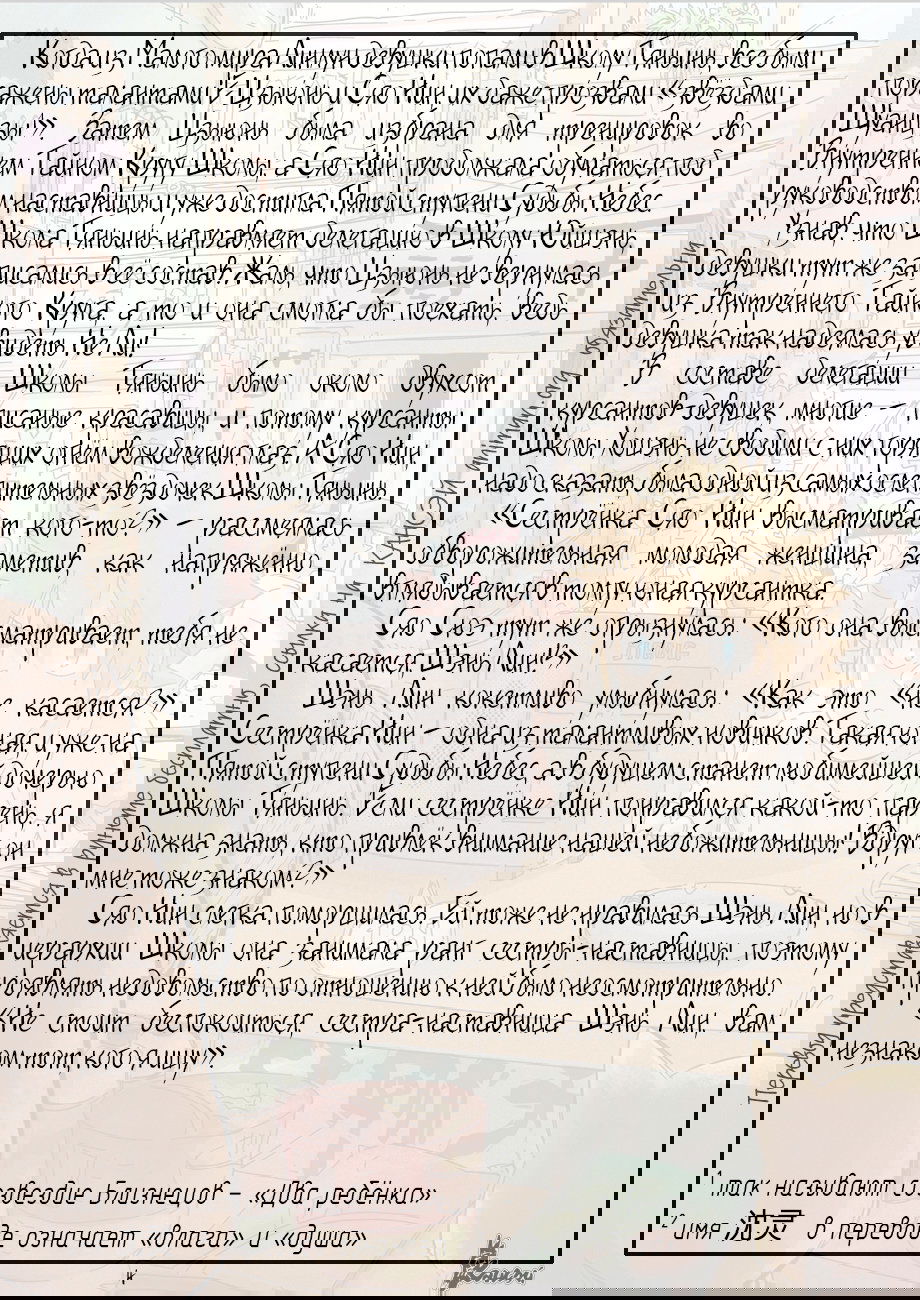 Когда из Малого мира Лин Чи девушки попали в Школу Тяньинь, все были
поражены талантами Е Цзыюнь и Сяо Нин, их даже прозвали «звёздами
Шуанцзы¹». Затем Цзыюнь была избрана для тренировок во
Внутреннем Тайном Кругу Школы, а Сяо Нин продолжала обучаться под
руководством наставницы и уже достигла Пятой ступени Судьбы Небес.
Узнав, что Школа Тяньинь направляет делегацию в Школу
девушки тут же записались в её состав. Жаль, что Цзыюнь не вернулась
из Внутреннего Тайного Круга, а то и она смогла бы поехать, ведь
девушка так надеялась увидеть Не Ли!
В составе делегации Школы Тяньинь было около двухсот
курсантов-девушек, многие – писаные красавицы, и потому курсанты
Школы не сводили с них горящих огнём вожделению глаз. И Сяо Нин,
надо сказать, была одной из самых ослепительных звёздочек Школы Тяньинь.
«Сестрёнка Сяо Нин высматривает кого-то?» – рассмеялась
обворожительная молодая женщина, заметив, как напряжённо
вглядывается в толпу юная курсантка.
Сяо Сюэ тут же огрызнулась: «Кого она высматривает, тебя не
касается, Шэнь Лин²!»
Шэнь Лин кокетливо улыбнулась: «Как это «не касается?»
Сестрёнка Нин – одна из талантливых новичков. Такая юная, и уже на
Пятой ступени Судьбы Небес, а в будущем станет любимейшей дочерью
Школы Тяньинь. Если сестрёнке Нин понравился какой-то парень, я
должна знать, кто привлёк внимание нашей небожительницы! Вдруг он
мне тоже знаком?»
Сяо Нин слегка поморщилась. Ей тоже не нравилась Шэнь Лин, но в
иерархии Школы она занимала ранг сестры-наставницы, поэтому
проявлять недовольство по отношению к ней было неосмотрительно.
«Не стоит беспокоиться, сестра-наставница Шэнь Лин, вам
незнаком тот, кого я ищу».
¹ так называют созвездие Близнецов – «Два ребёнка»
² имя 沈灵 в переводе означает «влага» и «душа»